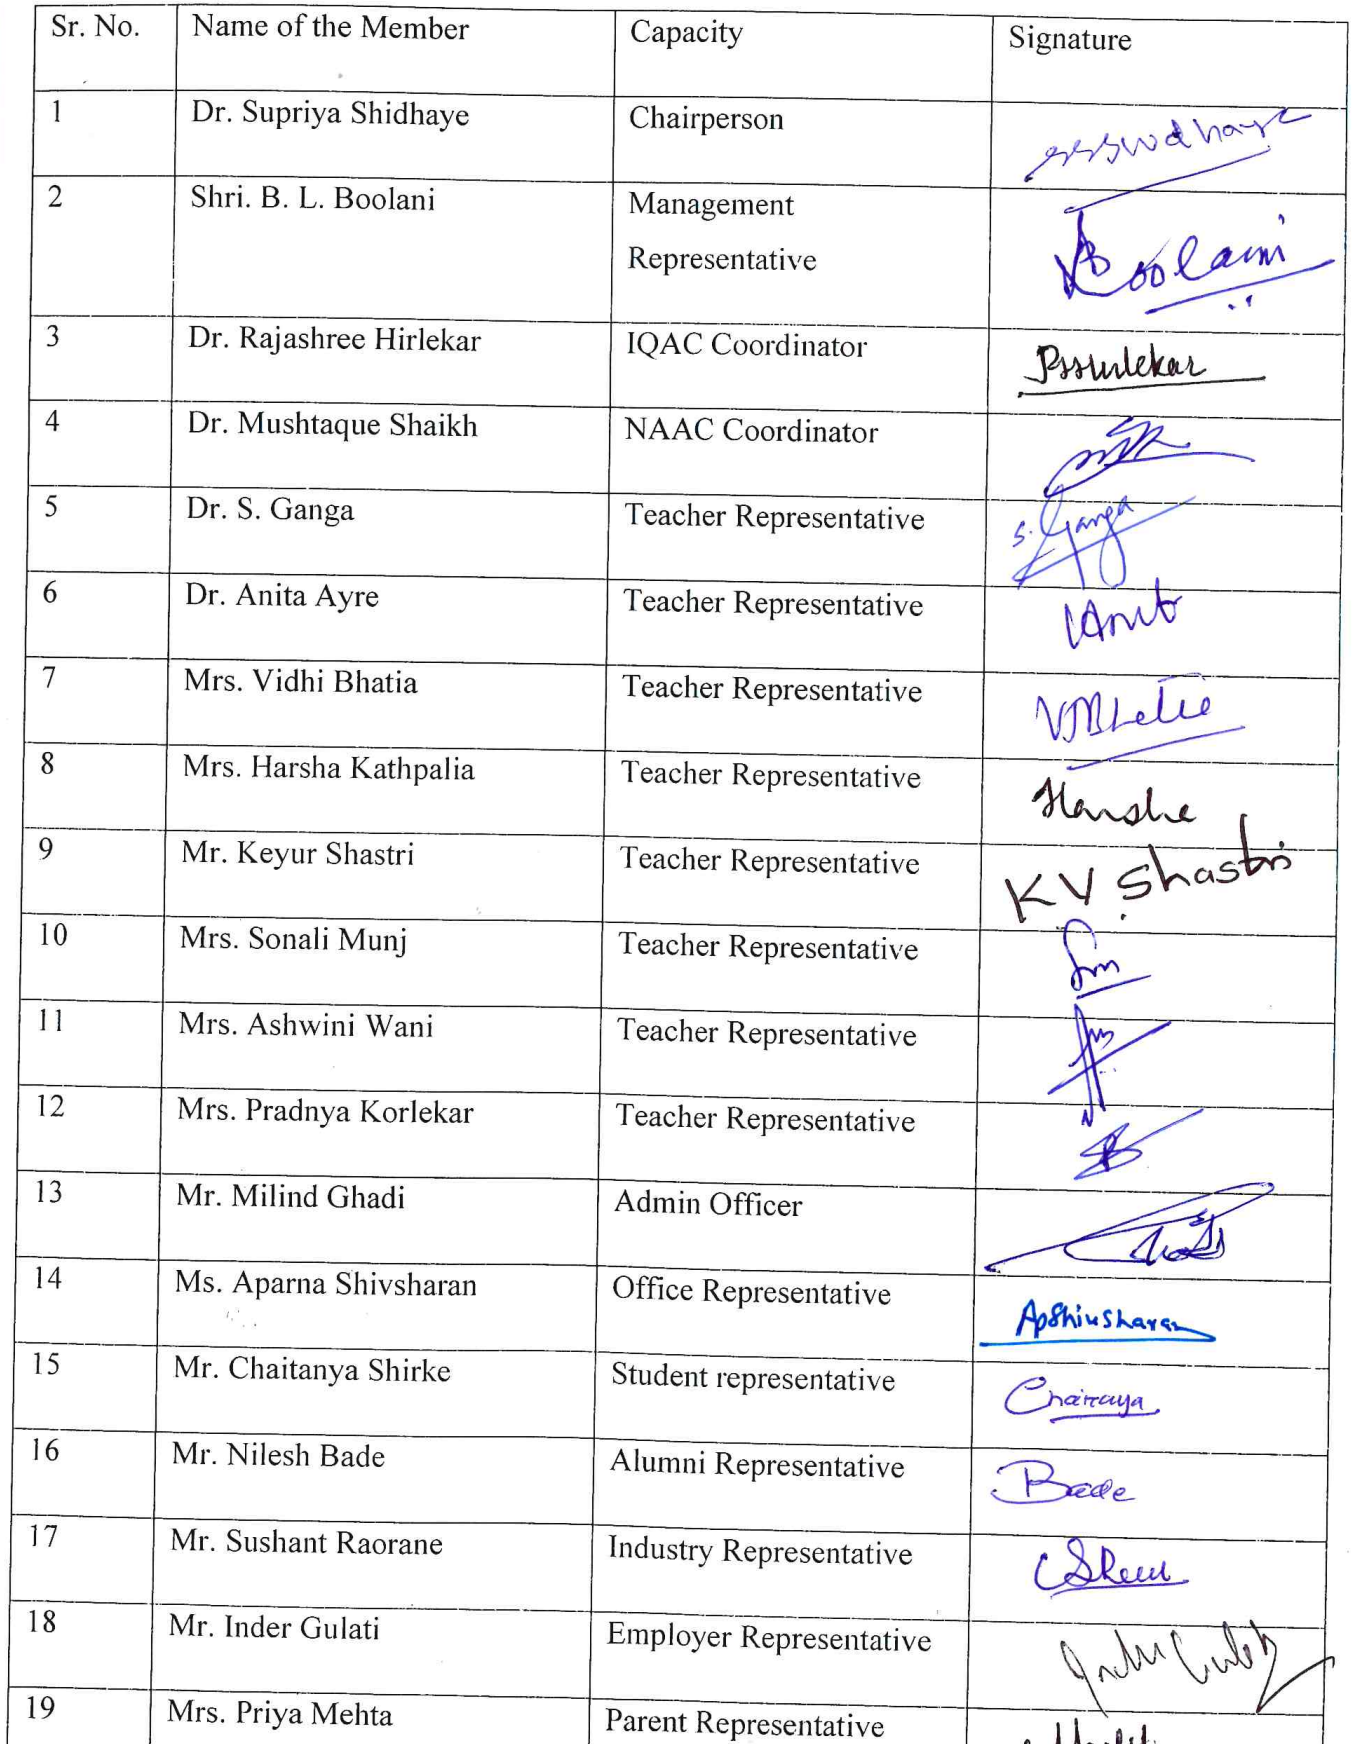 Sr. No. Name of the Member Capacity Signature
1 Dr. Supriya Shidhaye Chairperson
2 Shri. B. L. Boolani Management
Representative Boolani
3 Dr. Rajashree Hirlekar IQAC Coordinator
4 Dr. Mushtaque Shaikh NAAC Coordinator
5 Dr. S. Ganga Teacher Representative S. Ganga
6 Dr. Anita Ayre Teacher Representative
7 Mrs. Vidhi Bhatia Teacher Representative
8 Mrs. Harsha Kathpalia Teacher Representative Harsha
9 Mr. Keyur Shastri Teacher Representative K V Shastri
10 Mrs. Sonali Munj Teacher Representative
11 Mrs. Ashwini Wani Teacher Representative
12 Mrs. Pradnya Korlekar Teacher Representative
13 Mr. Milind Ghadi Admin Officer
14 Ms. Aparna Shivsharan Office Representative ApShivsharan
15 Mr. Chaitanya Shirke Student representative
16 Mr. Nilesh Bade Alumni Representative Bade
17 Mr. Sushant Raorane Industry Representative
18 Mr. Inder Gulati Employer Representative
19 Mrs. Priya Mehta Parent Representative